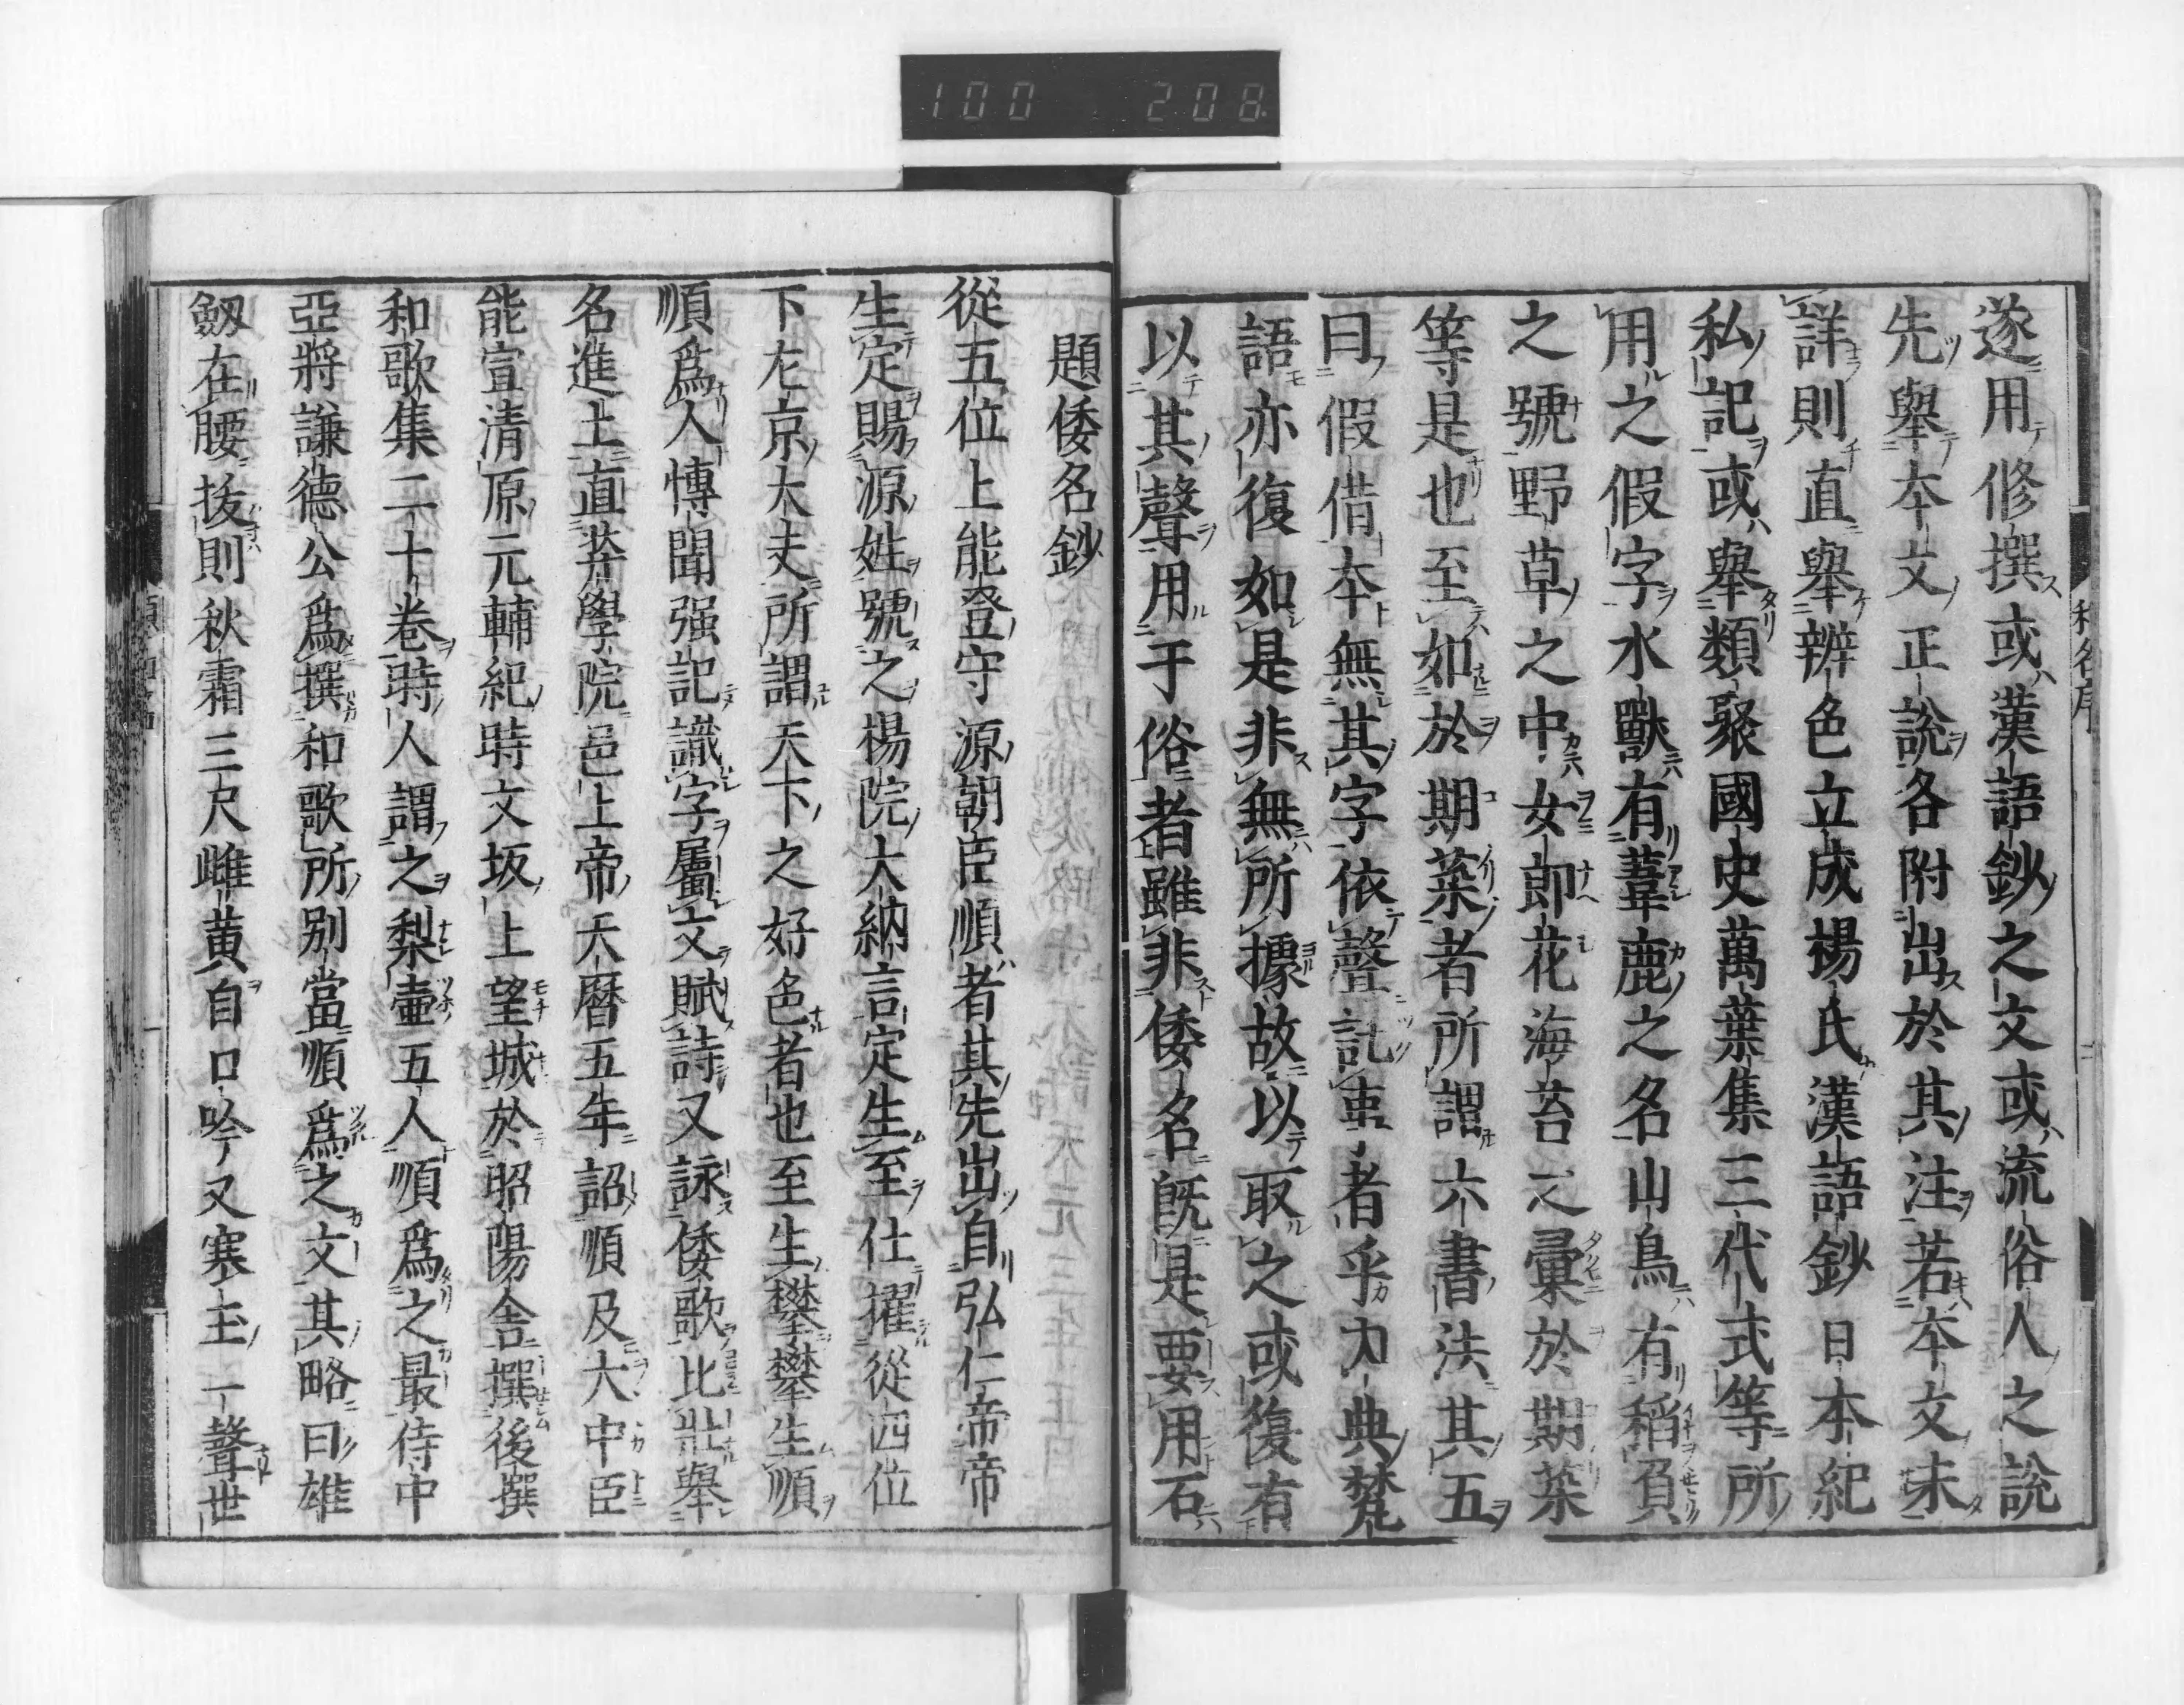 100 208
遂用修撰或漢語鈔之文或流俗人之說
先舉本文正說各附出於其注若本文未
詳則直舉辨色立成楊氏漢語鈔日本紀
私記或舉類聚國史萬葉集三代式等所
用之假字水獸有葦鹿之名山鳥有稻負
之號野草之中女郎花海苔之彙於期菜
等是也至如於期菜者所謂六書法其五
曰假借本無其字依聲託事者乎內典梵
語亦復如是非無所據故以取之或復有
以其聲用于俗者雖非倭名既是要用石
題倭名鈔
從五位上能登守源朝臣順者其先出自弘仁帝帝
生定賜源姓號之楊院大納言定生至仕擢從四位
下左京大夫所謂天下之好色者也至生攀攀生順
順爲人愽聞强記識字屬文賦詩又詠倭歌比壯舉
名進士直奘學院邑上帝天曆五年詔順及大中臣
能宣清原元輔紀時文坂上望城於昭陽舎撰後撰
和歌集二十卷時人謂之梨壷五人順爲之最侍中
亞將謙德公爲撰和歌所别當順爲之文其略曰雄
劔在腰拔則秋霜三尺雌黄自口吟又寒玉一聲世